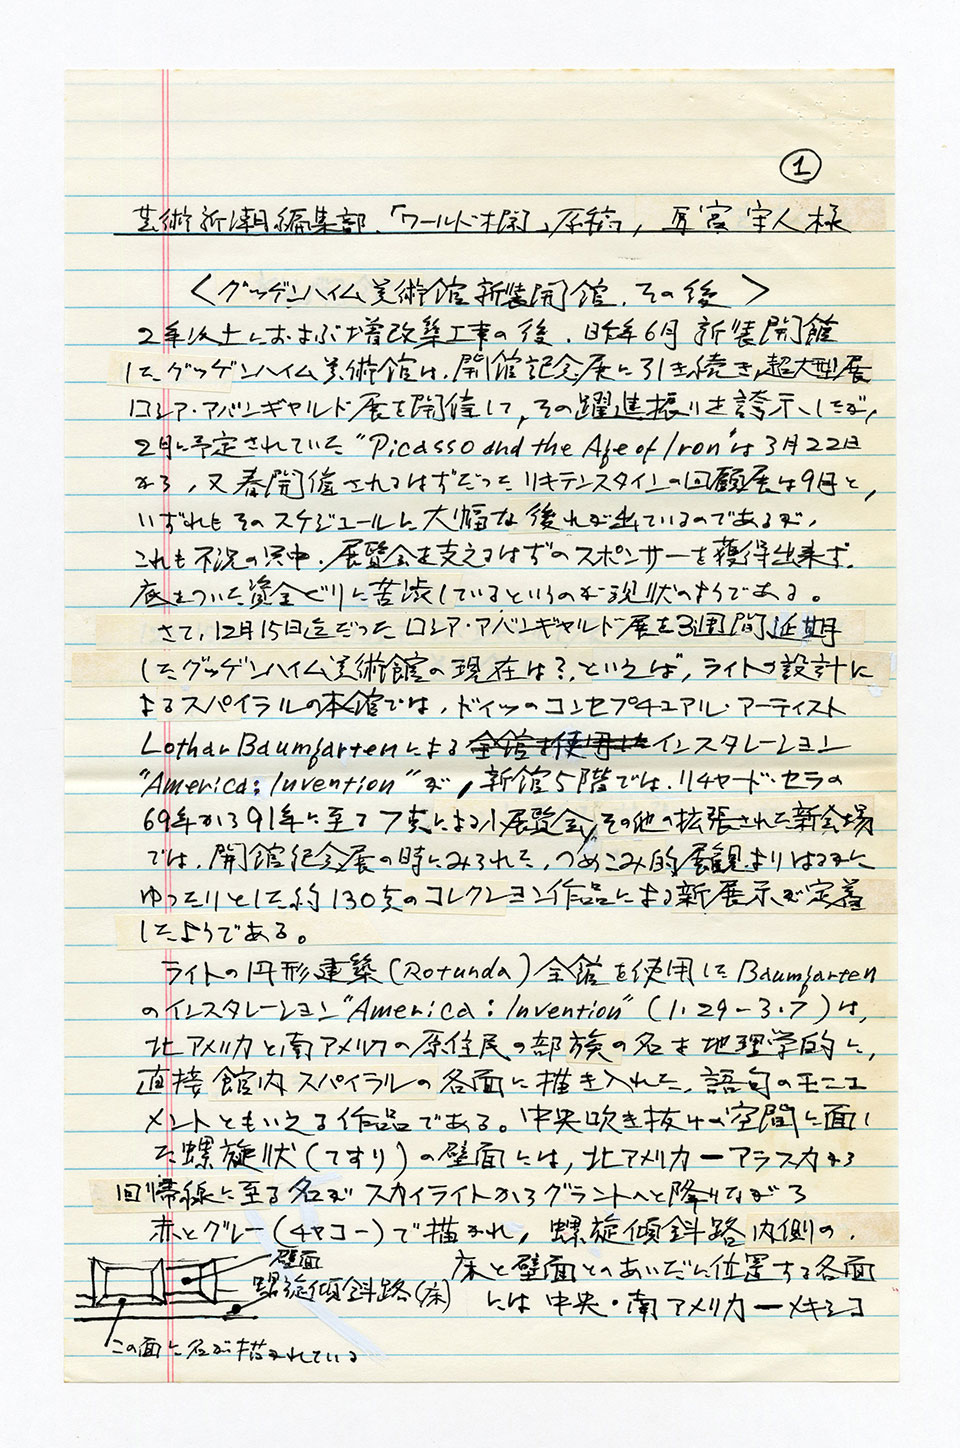 ①
芸術新潮編集部、「ワールド欄」原稿，耳宮宇人様
〈グッゲンハイム美術館新装開館、その後〉
2年以上におよぶ増改築工事の後、昨年6月新装開館
したグッゲンハイム美術館は、開館記念展に引き続き、超大型展
ロシア・アバンギャルド展を開催して、その躍進振りを誇示したが，
2月に予定されていた“Picasso and the Age of Iron”は3月22日
から，又春開催されるはずだったリキテンスタインの回顧展は9月と，
いずれもそのスケジュールに大幅な後れが出ているのであるが，
これも不況の渦中、展覧会を支えるはずのスポンサーを獲得出来ず、
底をついた資金ぐりに苦渋しているというのが現状のようである。
さて，12月15日迄だったロシア・アバンギャルド展を3週間延期
したグッゲンハイム美術館の現在は？、といえば，ライトの設計に
よるスパイラルの本館では、ドイツのコンセプチュアル・アーティスト
Lothar Baumgartenによる全館を使用したインスタレーション
“America: Invention”が，新館5階では、リチャード・セラの
69年から91年に至る7点による小展覧会、その他の拡張された新会場
では、開館紀念展の時にみられた、つめこみ的展観よりはるかに
ゆったりとした約130点のコレクション作品による新展示が定着
したようである。
ライトの円形建築(Rotunda)全館を使用したBaumgarten
のインスタレーション“America: Invention”(1・29-3・7)は，
北アメリカと南アメリカの原住民の部族の名を地理学的に，
直接館内スパイラルの各面に描き入れた、語句のモニュ
メントともいえる作品である。中央吹き抜けの空間に面し
た螺旋状(てすり)の壁面には，北アメリカーアラスカから
回帰線に至る名がスカイライトからグラントへと降りながら
赤とグレー(チャコー)で描かれ，螺旋傾斜路内側の、
床と壁面とのあいだに位置する各面
には中央・南アメリカーメキシコ
壁面
螺旋傾斜路(床)
この面に名が描かれている